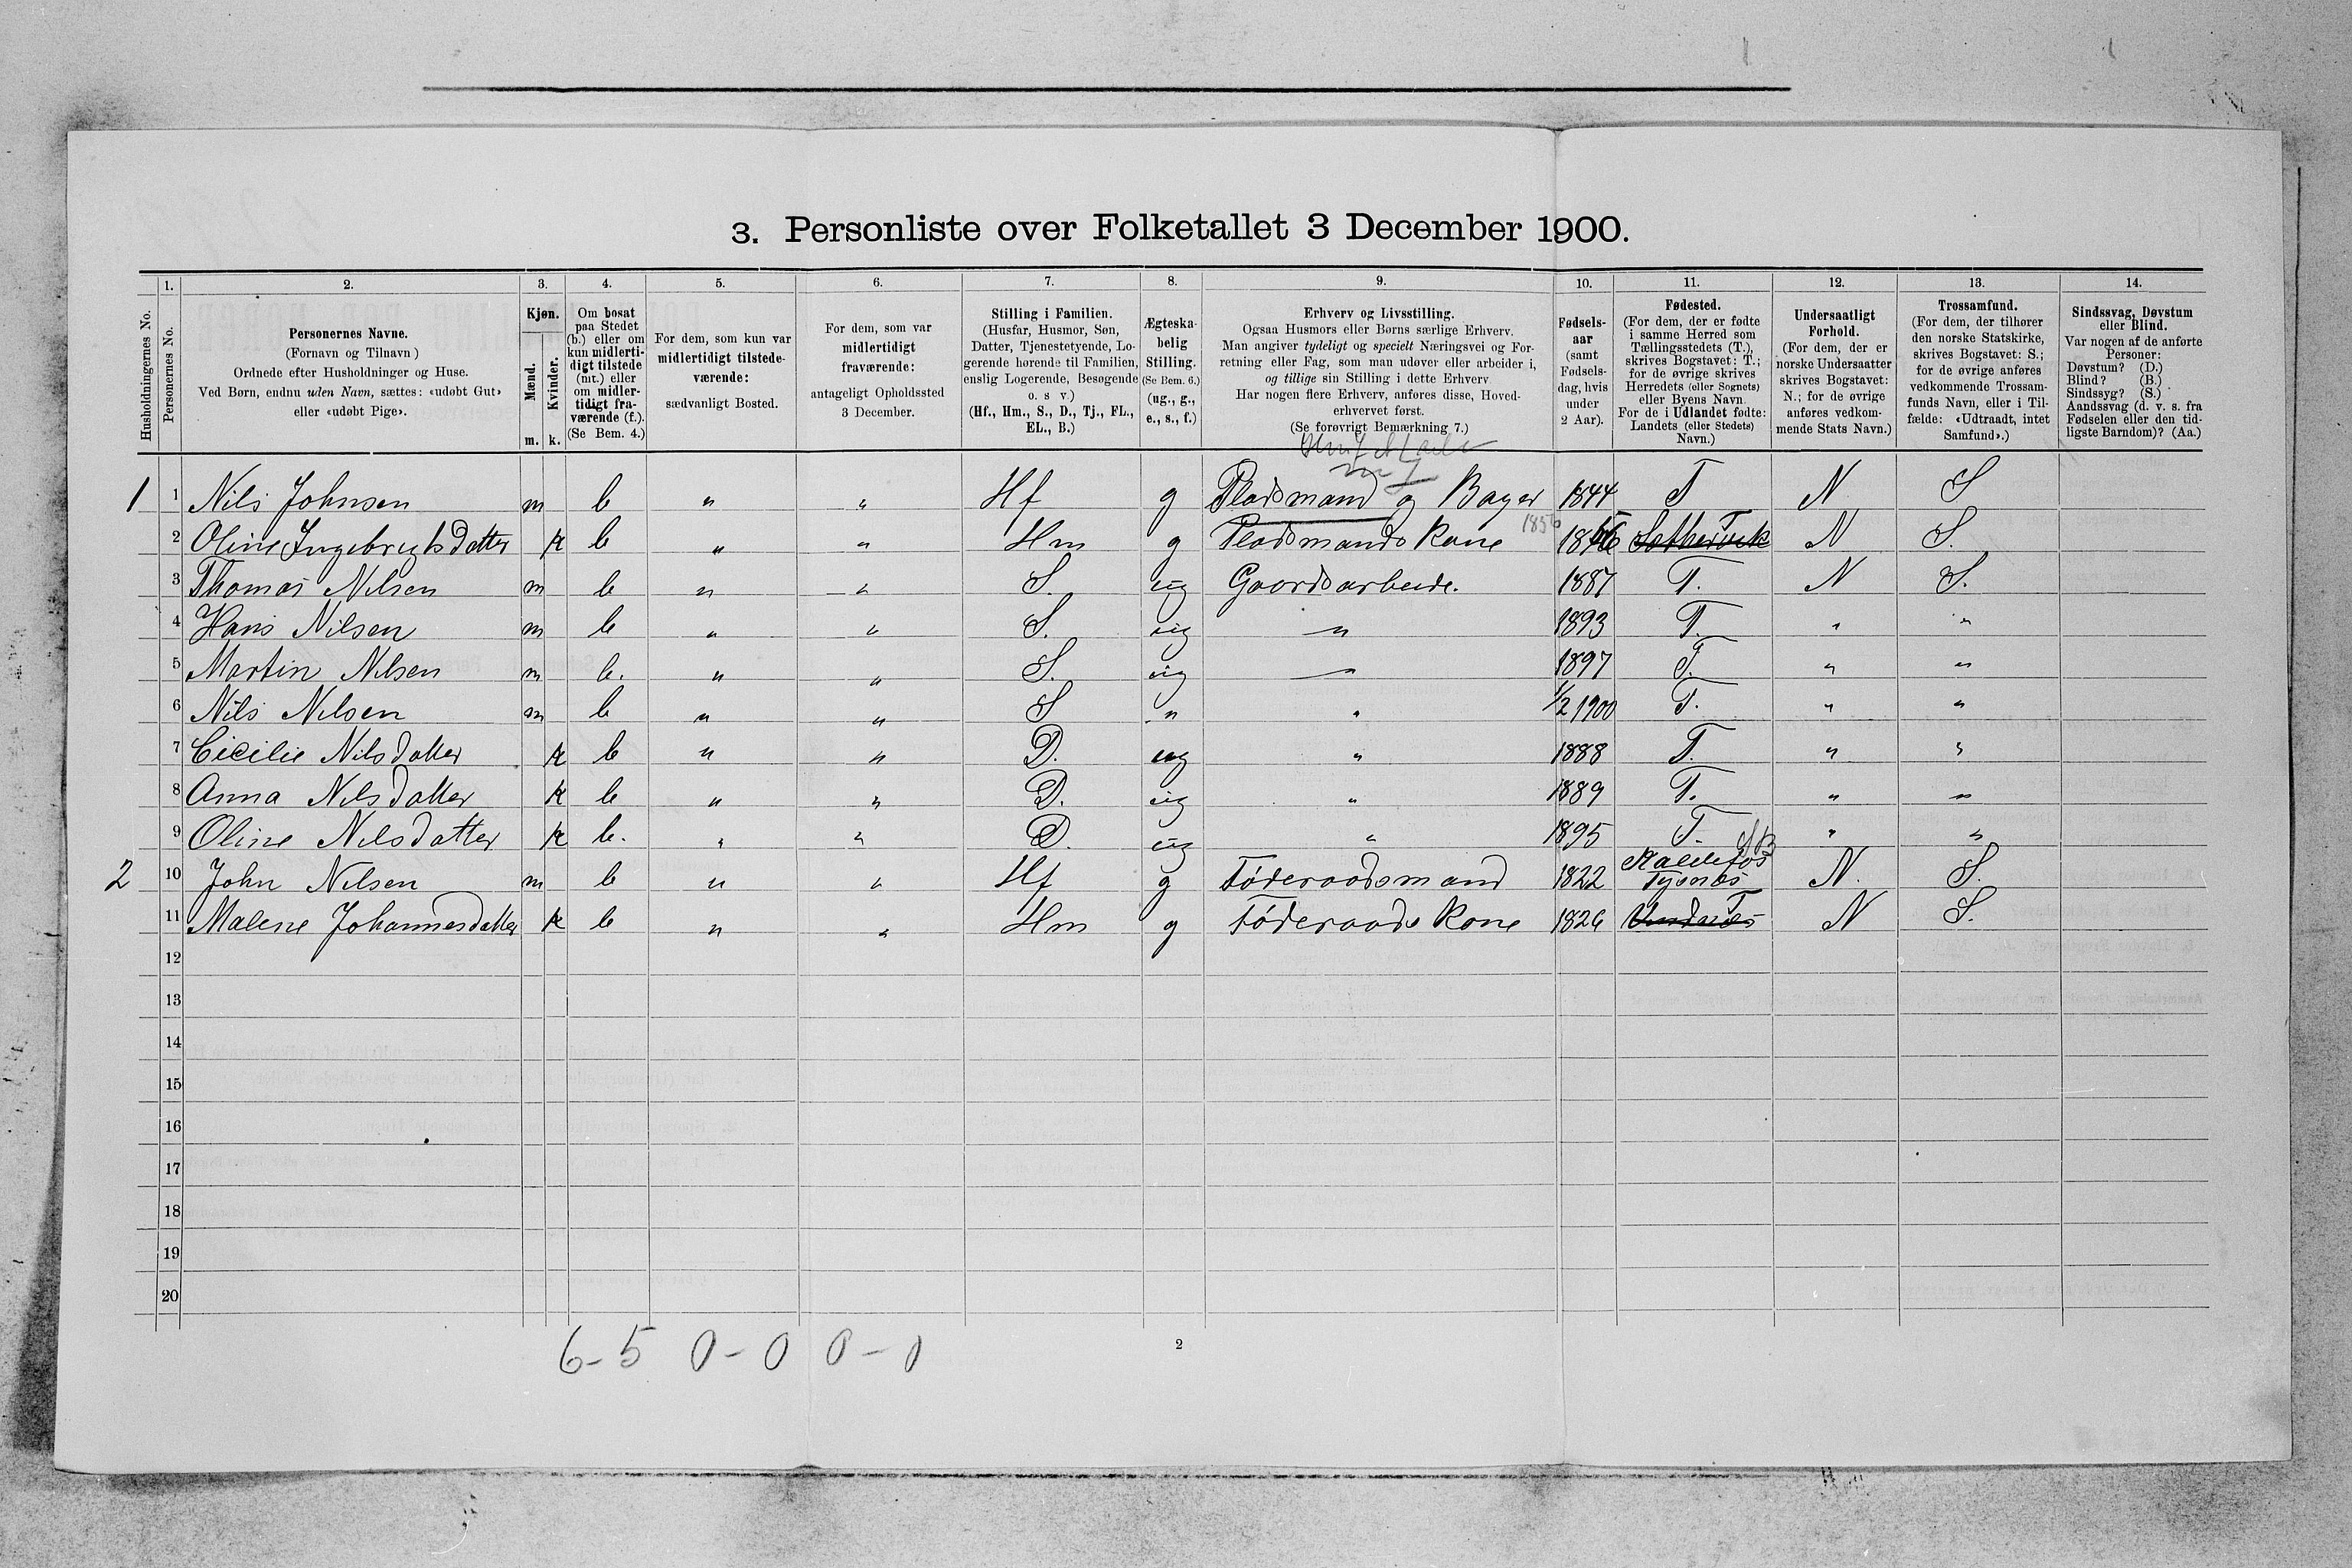 3. Personliste over Folketallet 3 December 1900.
1. 2. 3. 4. 5. 6. 7. 8. 9. 10. 11. 12. 13. 14.
Husholdningernes No.
Personernes No.
Personernes Navne.
(Fornavn og Tilnavn )
Ordnede efter Husholdninger og Huse.
Ved Børn, endnu uden Navn, sættes: «udøbt Gut»
eller «udøbt Pige».
Kjøn.
Mænd.
Kvinder.
m. k.
Om bosat
paa Stedet
(b.) eller om
kun midlerti-
digt tilstede
(mt.) eller
om midler-
tidigt fra-
værende (f.).
(Se Bem. 4.)
For dem, som kun var
midlertidigt tilstede-
værende:
sædvanligt Bosted.
For dem, som var
midlertidigt
fraværende:
antageligt Opholdssted
3 December.
Stilling i Familien.
(Husfar, Husmor, Søn,
Datter, Tjenestetyende, Lo-
gerende hørende til Familien,
enslig Logerende, Besøgende
o. s v.)
(Hf., Hm., S., D., Tj., FL.,
EL., B.)
Ægteska-
belig
Stilling.
(Se Bem. 6.)
(ug., g.,
e., s., f.)
Erhverv og Livsstilling.
Ogsaa Husmors eller Børns særlige Erhverv.
Man angiver tydeligt og specielt Næringsvei og For-
retning eller Fag, som man udøver eller arbeider i,
og tillige sin Stilling i dette Erhverv
Har nogen flere Erhverv, anføres disse, Hoved-
erhvervet først.
(Se forøvrigt Bemærkning 7.)
Fødsels-
aar
(samt
Fødsels-
dag, hvis
under
2 Aar).
Fødested.
(For dem, der er fødte
i samme Herred som
Tællingsstedets (T.),
skrives Bogstavet: T.;
for de øvrige skrives
Herredets (eller Sognets)
eller Byens Navn.
For de i Udlandet fødte:
Landets (eller Stedets)
Navn.)
Undersaatligt
Forhold.
(For dem, der er
norske Undersaatter
skrives Bogstavet:
N.; for de øvrige
anføres vedkom-
mende Stats Navn.)
Trossamfund.
(For dem, der tilhører
den norske Statskirke,
skrives Bogstavet: S.;
for de øvrige anføres
vedkommende Trossam-
funds Navn, eller i Til-
fælde: «Udtraadt, intet
Samfund».)
Sindssvag, Døvstum
eller Blind.
Var nogen af de anførte
Personer:
Døvstum? (D.)
Blind? (B.)
Sindssyg? (S.)
Aandssvag (d. v. s. fra
Fødselen eller den tid-
ligste Barndom)? (Aa.)
1 1 Nils Johnsen m b " " Hf g Pladsmand og Bager 1844 T N S
1856
2 Oline Ingebrigtsdatter k b " " Hm g Pladsmands Kone T N S.
3 Thomas Nilsen m b " " S. ug Gaardsarbeide. 1887 T. N S.
4 Hans Nilsen m b " " S. ug " 1893 T. " "
5 Martin Nilsen m b. " " S. ug 1897 T. " "
6 Nils Nilsen m b " " S " " 1/2 1900 T. " "
7 Cicilie Nilsdatter k b " " D. ug " 1888 T. " "
8 Anna Nilsdatter k b " " D. ug " 1889 T. " "
9 Oline Nilsdatter k b. " " D. ug " 1895 T. " "
SB
2 10 John Nilsen m b " " Hf g Føderaadsmand 1822 Tysnes N. S.
11 Malene Johannesdatter k b " " Hm g Føderaads Kone 1826 T N S.
12
13
14
15
16
17
18
19
20
6-5 0-0 0-0
2